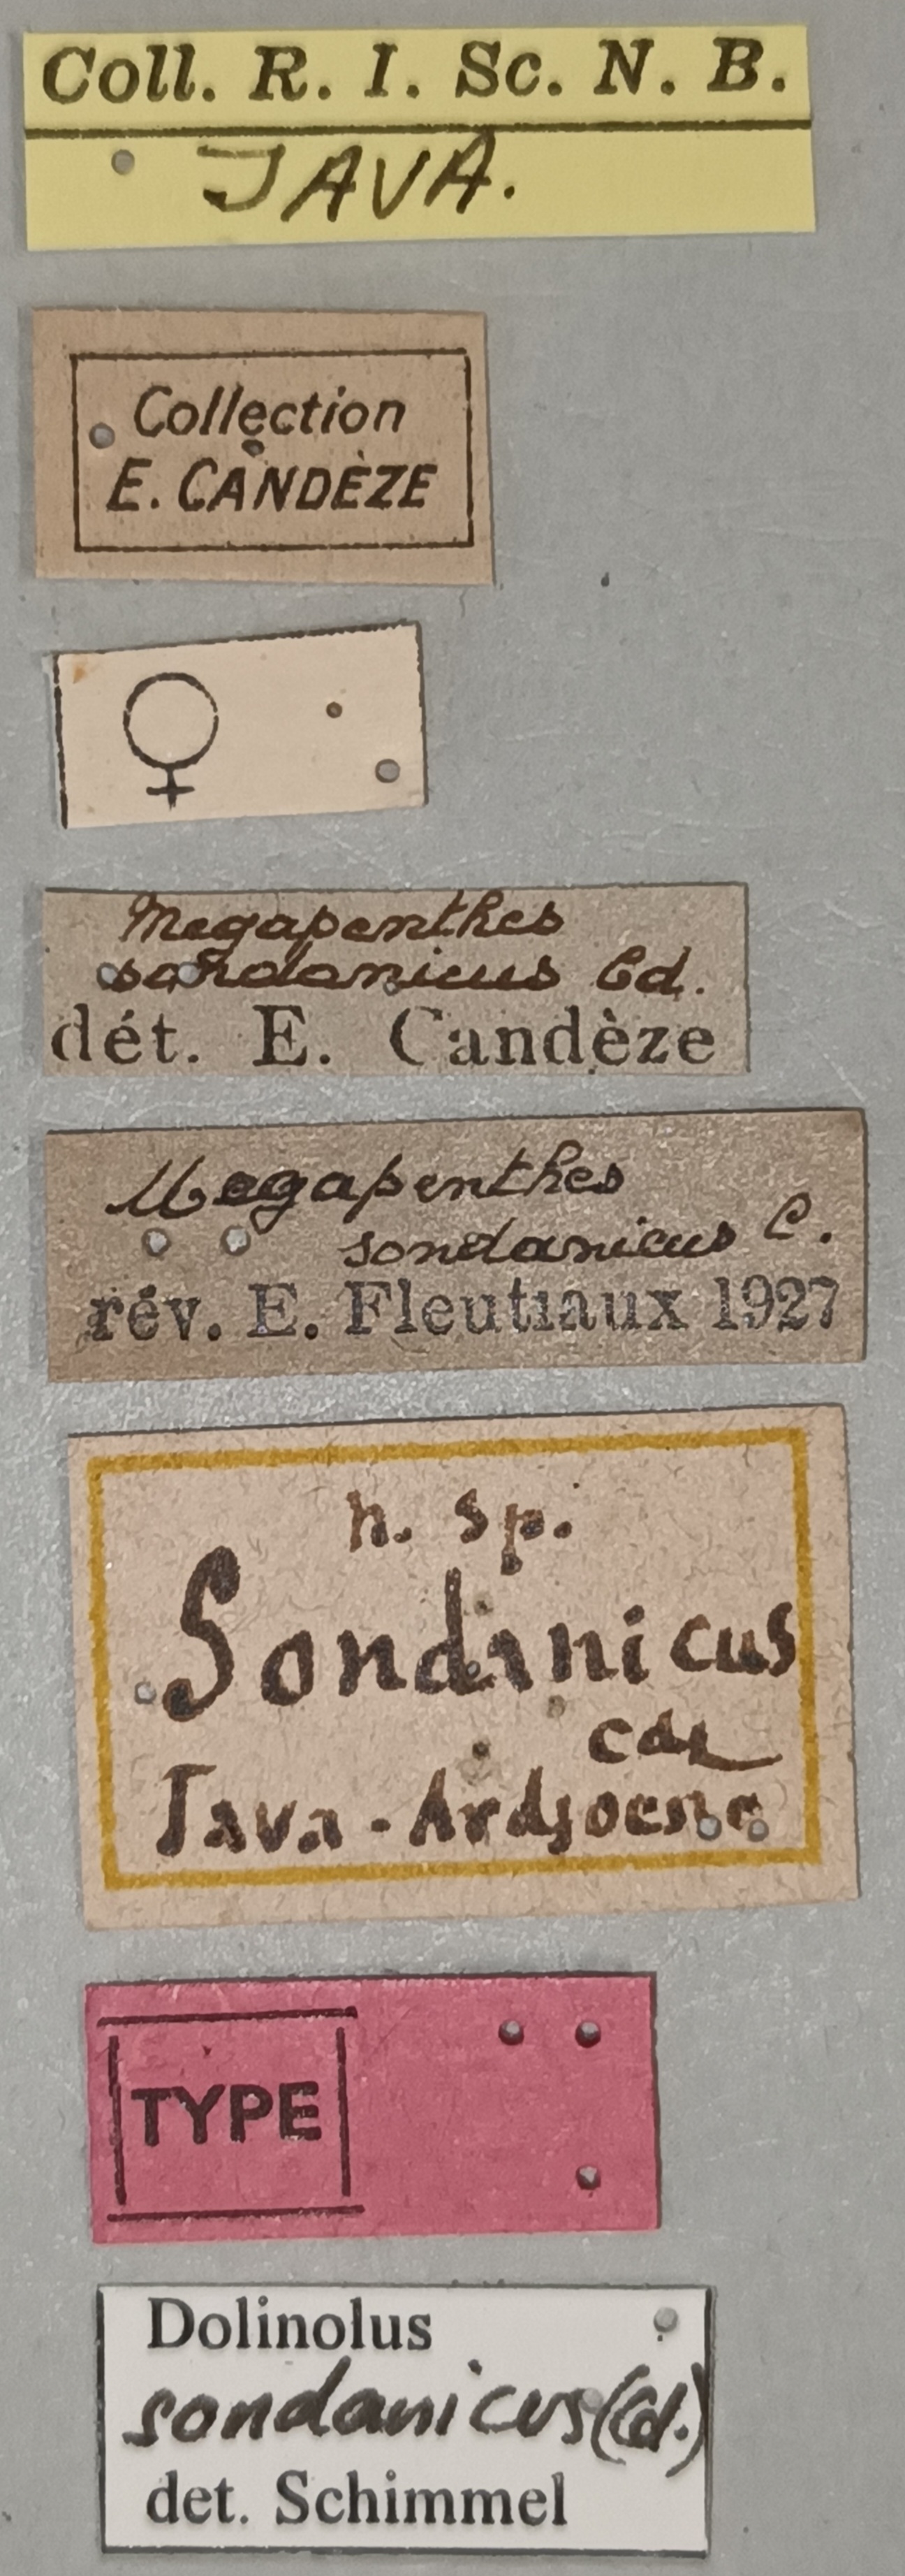 Coll. R. I. Sc. N. B.
JAVA.
Collection
E. CANDÈZE
♀
Megapenthes
sondanicus Cd.
dét. E. Candèze
Megapenthes
sondanicus C.
rév. E. Fleutiaux 1927
n. sp.
Sondanicus
Cdz
Java - Ardjoeno
TYPE
Dolinolus
sondanicus (Cd.)
det. Schimmel